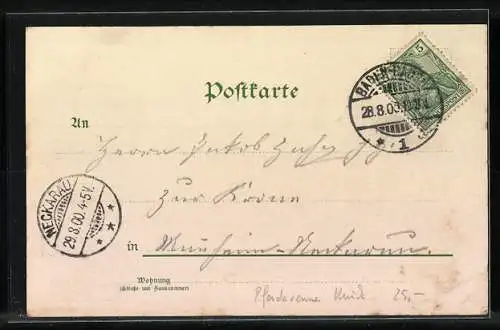 Postkarte
5
BADEN-BADEN
28.8.00.
* 1
An
Herrn Jakob
zur Krone
NECKARAU
29.8.00.4-5V.
in Mannheim-Neckarau.
Wohnung
(Straße und Hausnummer)
25,-